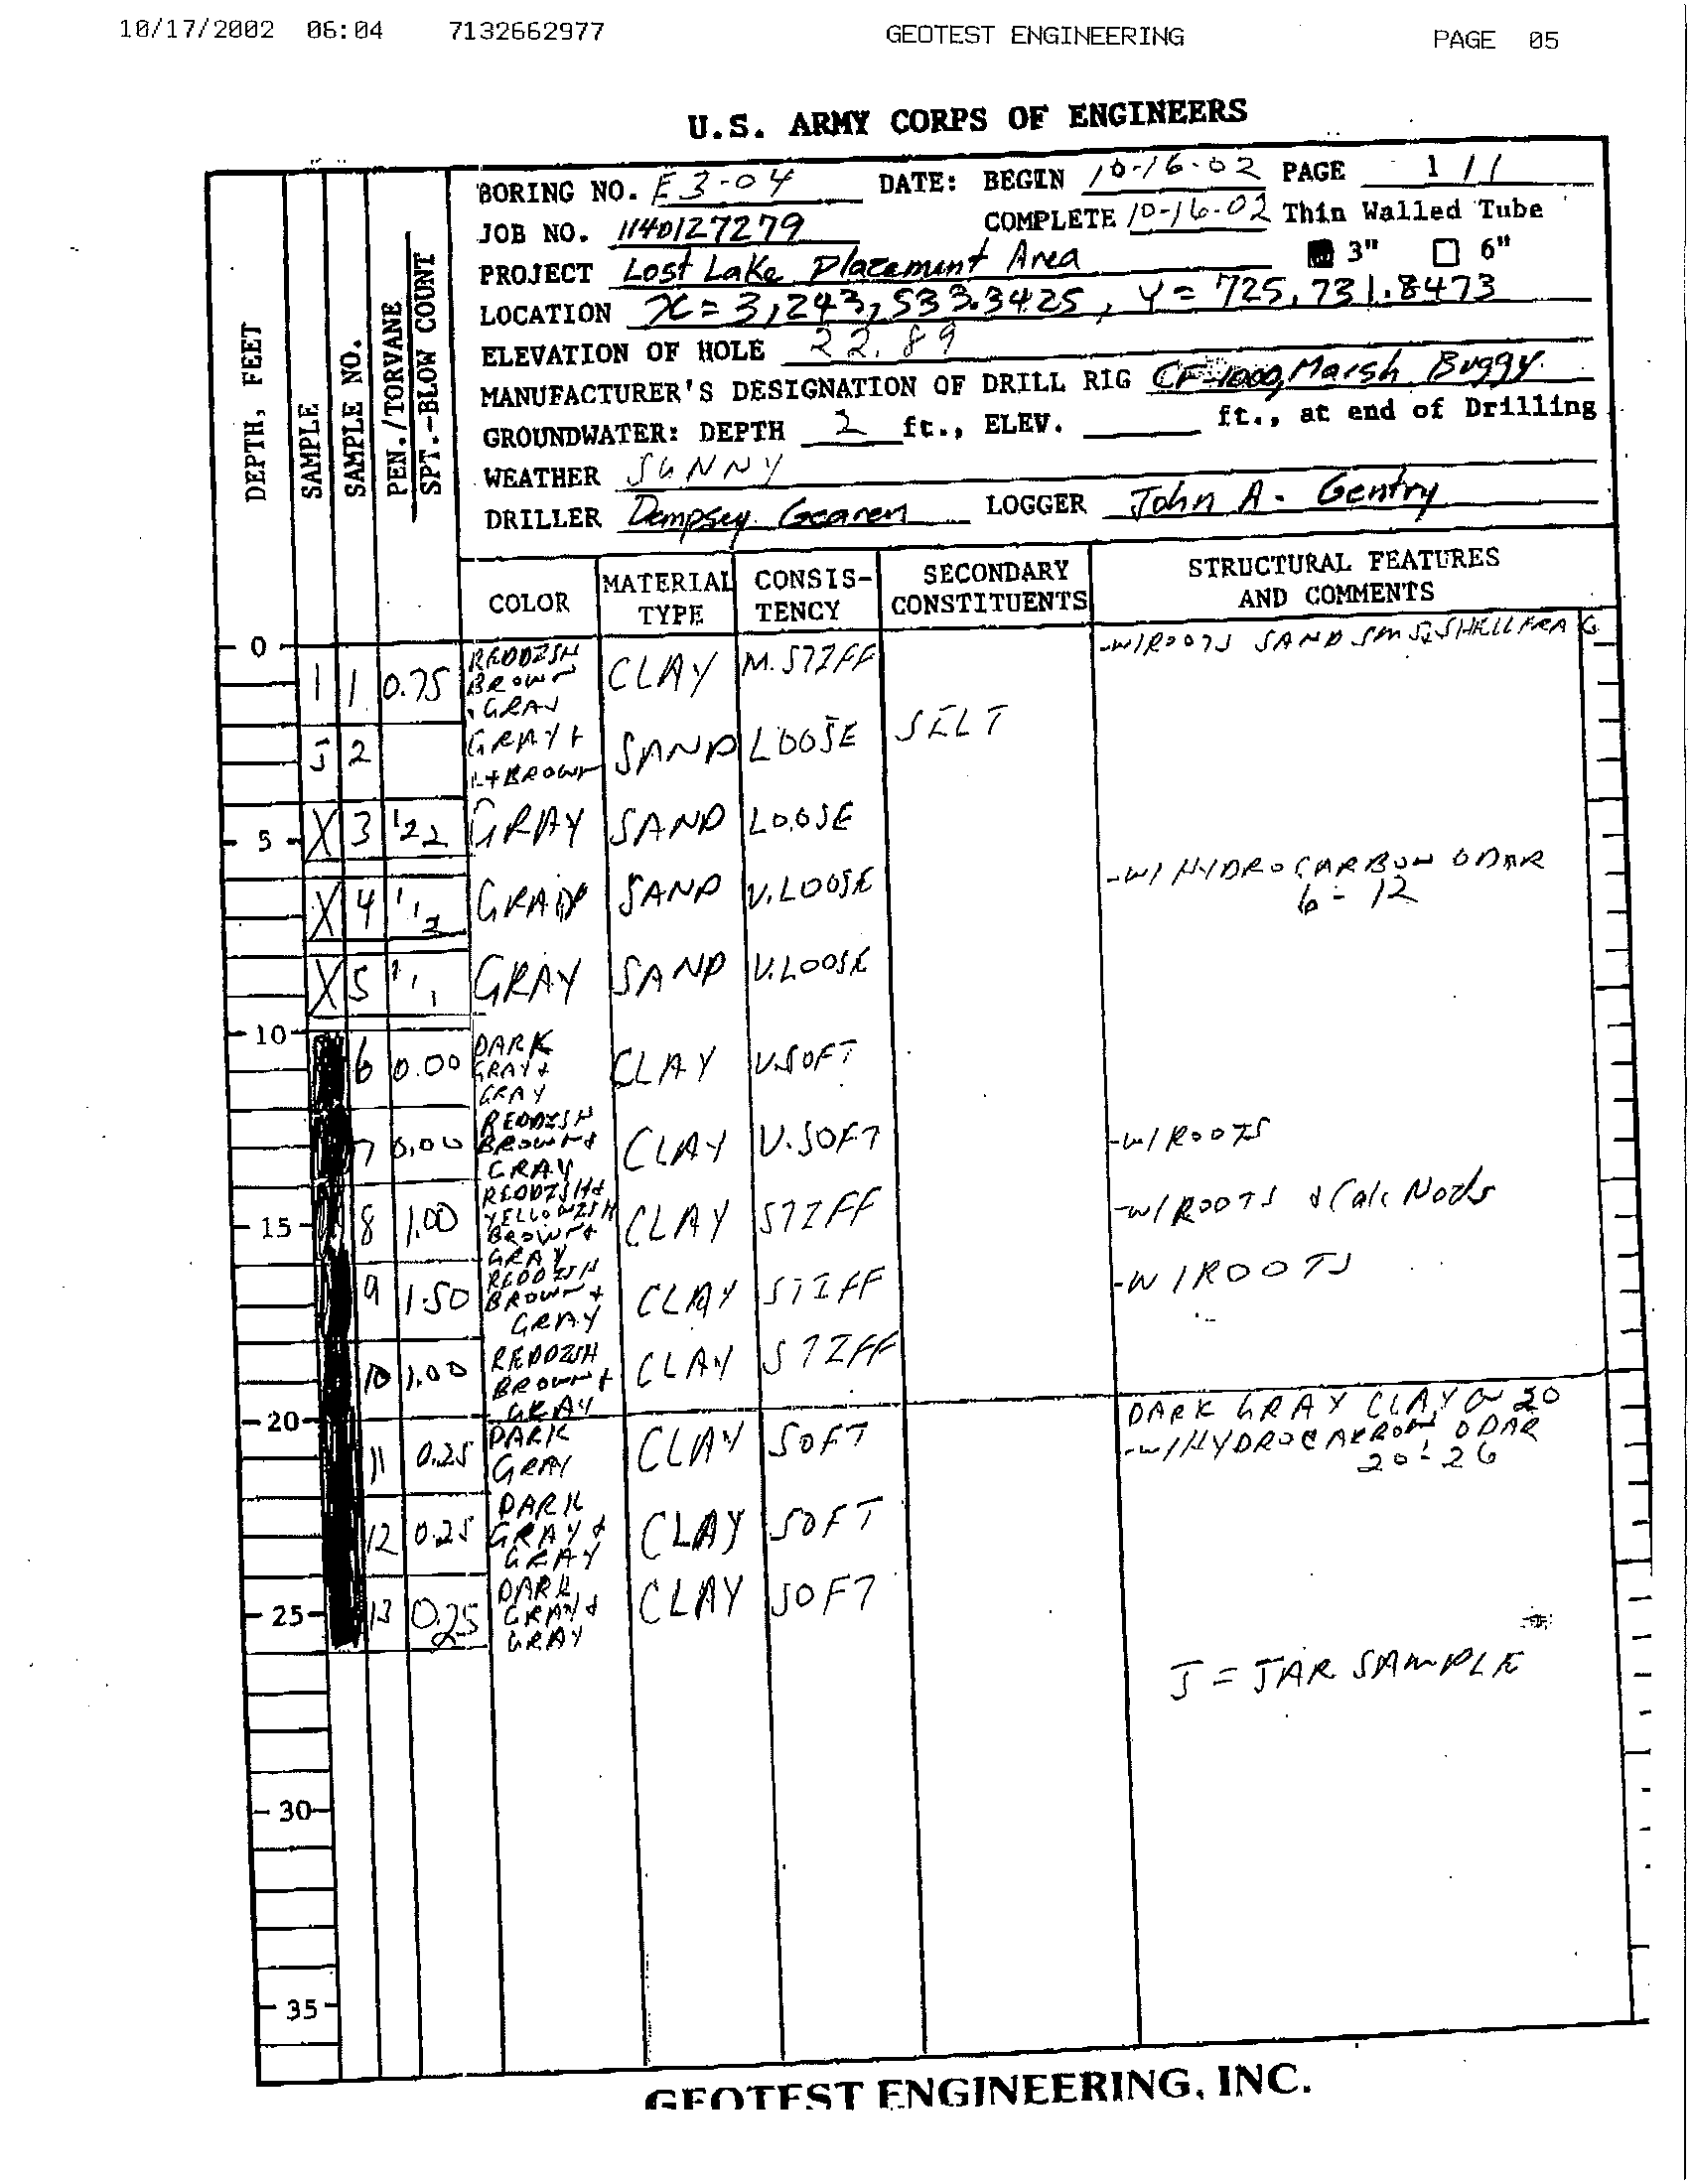 10/17/2002 06:04 7132662977 GEOTEST ENGINEERING PAGE 05
U.S. ARMY CORPS OF ENGINEERS
BORING NO. E3-04 DATE: BEGIN 10-16-02 PAGE 1 / 1
JOB NO. 1140127279 COMPLETE 10-16-02 Thin Walled Tube
PROJECT Lost Lake Placement Area 3" 6"
LOCATION X = 3,243,533.3425, Y = 725,731.8473
ELEVATION OF HOLE 22.89
MANUFACTURER'S DESIGNATION OF DRILL RIG CF-1000, Marsh Buggy
GROUNDWATER: DEPTH 2 ft., ELEV. ft., at end of Drilling
WEATHER SUNNY
DRILLER Dempsey Gearen LOGGER John A. Gentry
DEPTH, FEET
SAMPLE
SAMPLE NO.
PEN./TORVANE
SPT.-BLOW COUNT
COLOR
MATERIAL TYPE
CONSIS-TENCY
SECONDARY CONSTITUENTS
STRUCTURAL FEATURES AND COMMENTS
0
-W/ROOTS SAND SHELL FRAG
1 1 0.75 REDDISH BROWN GRAY CLAY M. STIFF
J 2 GRAY + LT BROWN SAND LOOSE SILT
5 X 3 1 2 2 GRAY SAND LOOSE
-W/ HYDROCARBON ODAR
6 - 12
X 4 1 1 2 GRAY SAND V. LOOSE
X 5 1 1 1 GRAY SAND V. LOOSE
10
6 0.00 DARK GRAY + GRAY CLAY V. SOFT
7 0.00 REDDISH BROWN + GRAY CLAY V. SOFT -W/ ROOTS
15 8 1.00 REDDISH + YELLOWISH BROWN + GRAY CLAY STIFF -W/ ROOTS + Calc Nods
9 1.50 REDDISH BROWN + GRAY CLAY STIFF -W/ROOTS
10 1.00 REDDISH BROWN + GRAY CLAY STIFF
20 DARK GRAY CLAY @ 20
11 0.25 DARK GRAY CLAY SOFT -W/HYDROCARBON ODAR
20 - 26
12 0.25 DARK GRAY + GRAY CLAY SOFT
25 13 0.25 DARK GRAY + GRAY CLAY SOFT
J = JAR SAMPLE
30
35
GEOTEST ENGINEERING, INC.